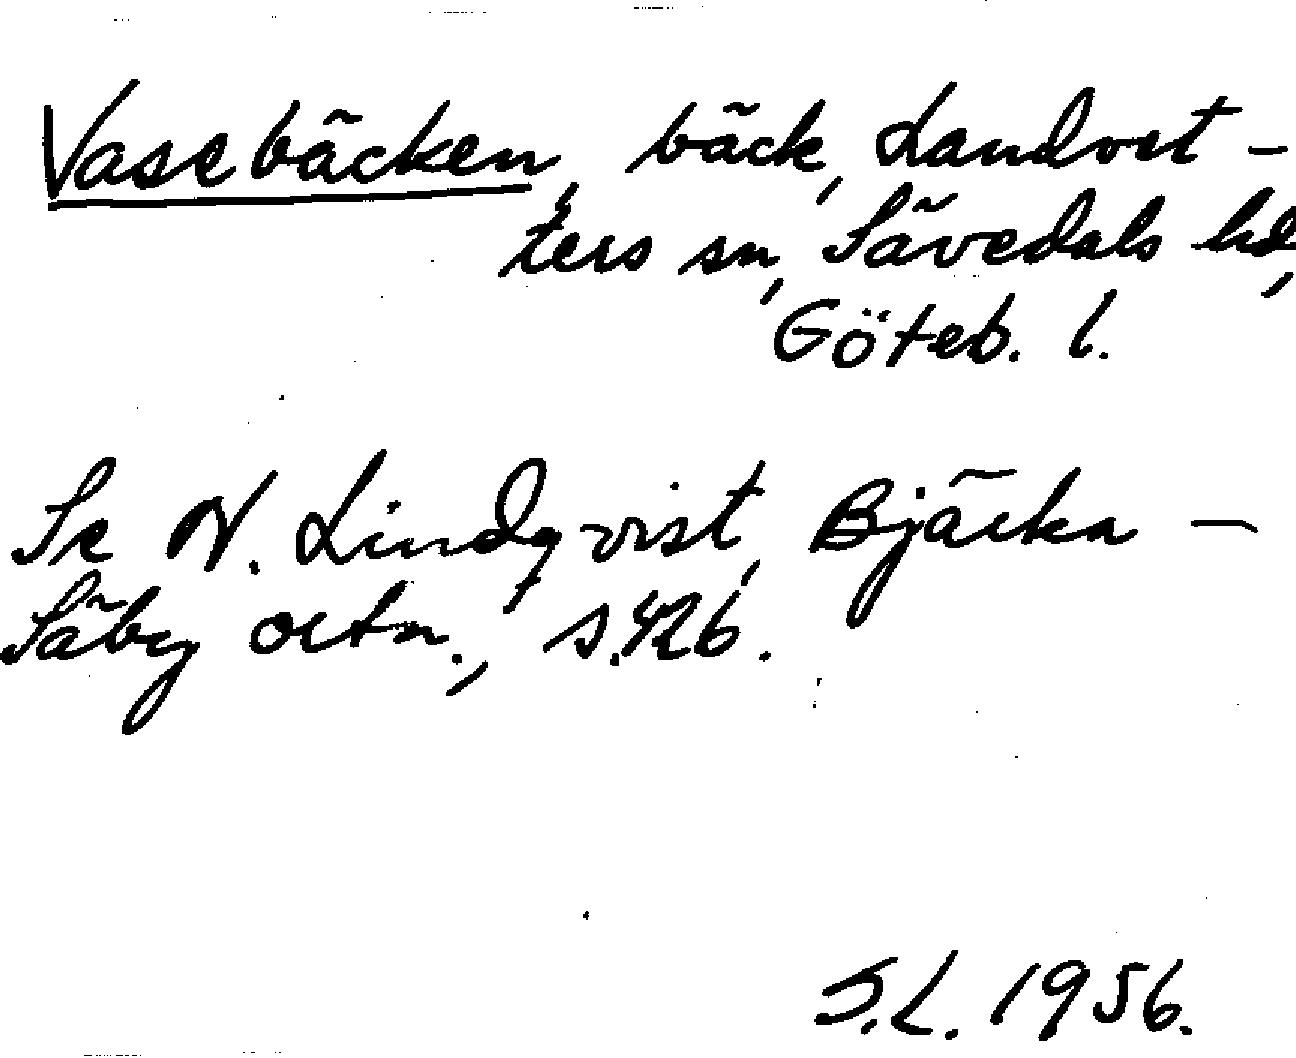 Vasebäcken, bäck, Landvet-
ters sn, Sävedals hd,
Göteb. l.
Se N. Lindqvist, Bjärka-
Säby ortn., s. 426.
S.L. 1956.